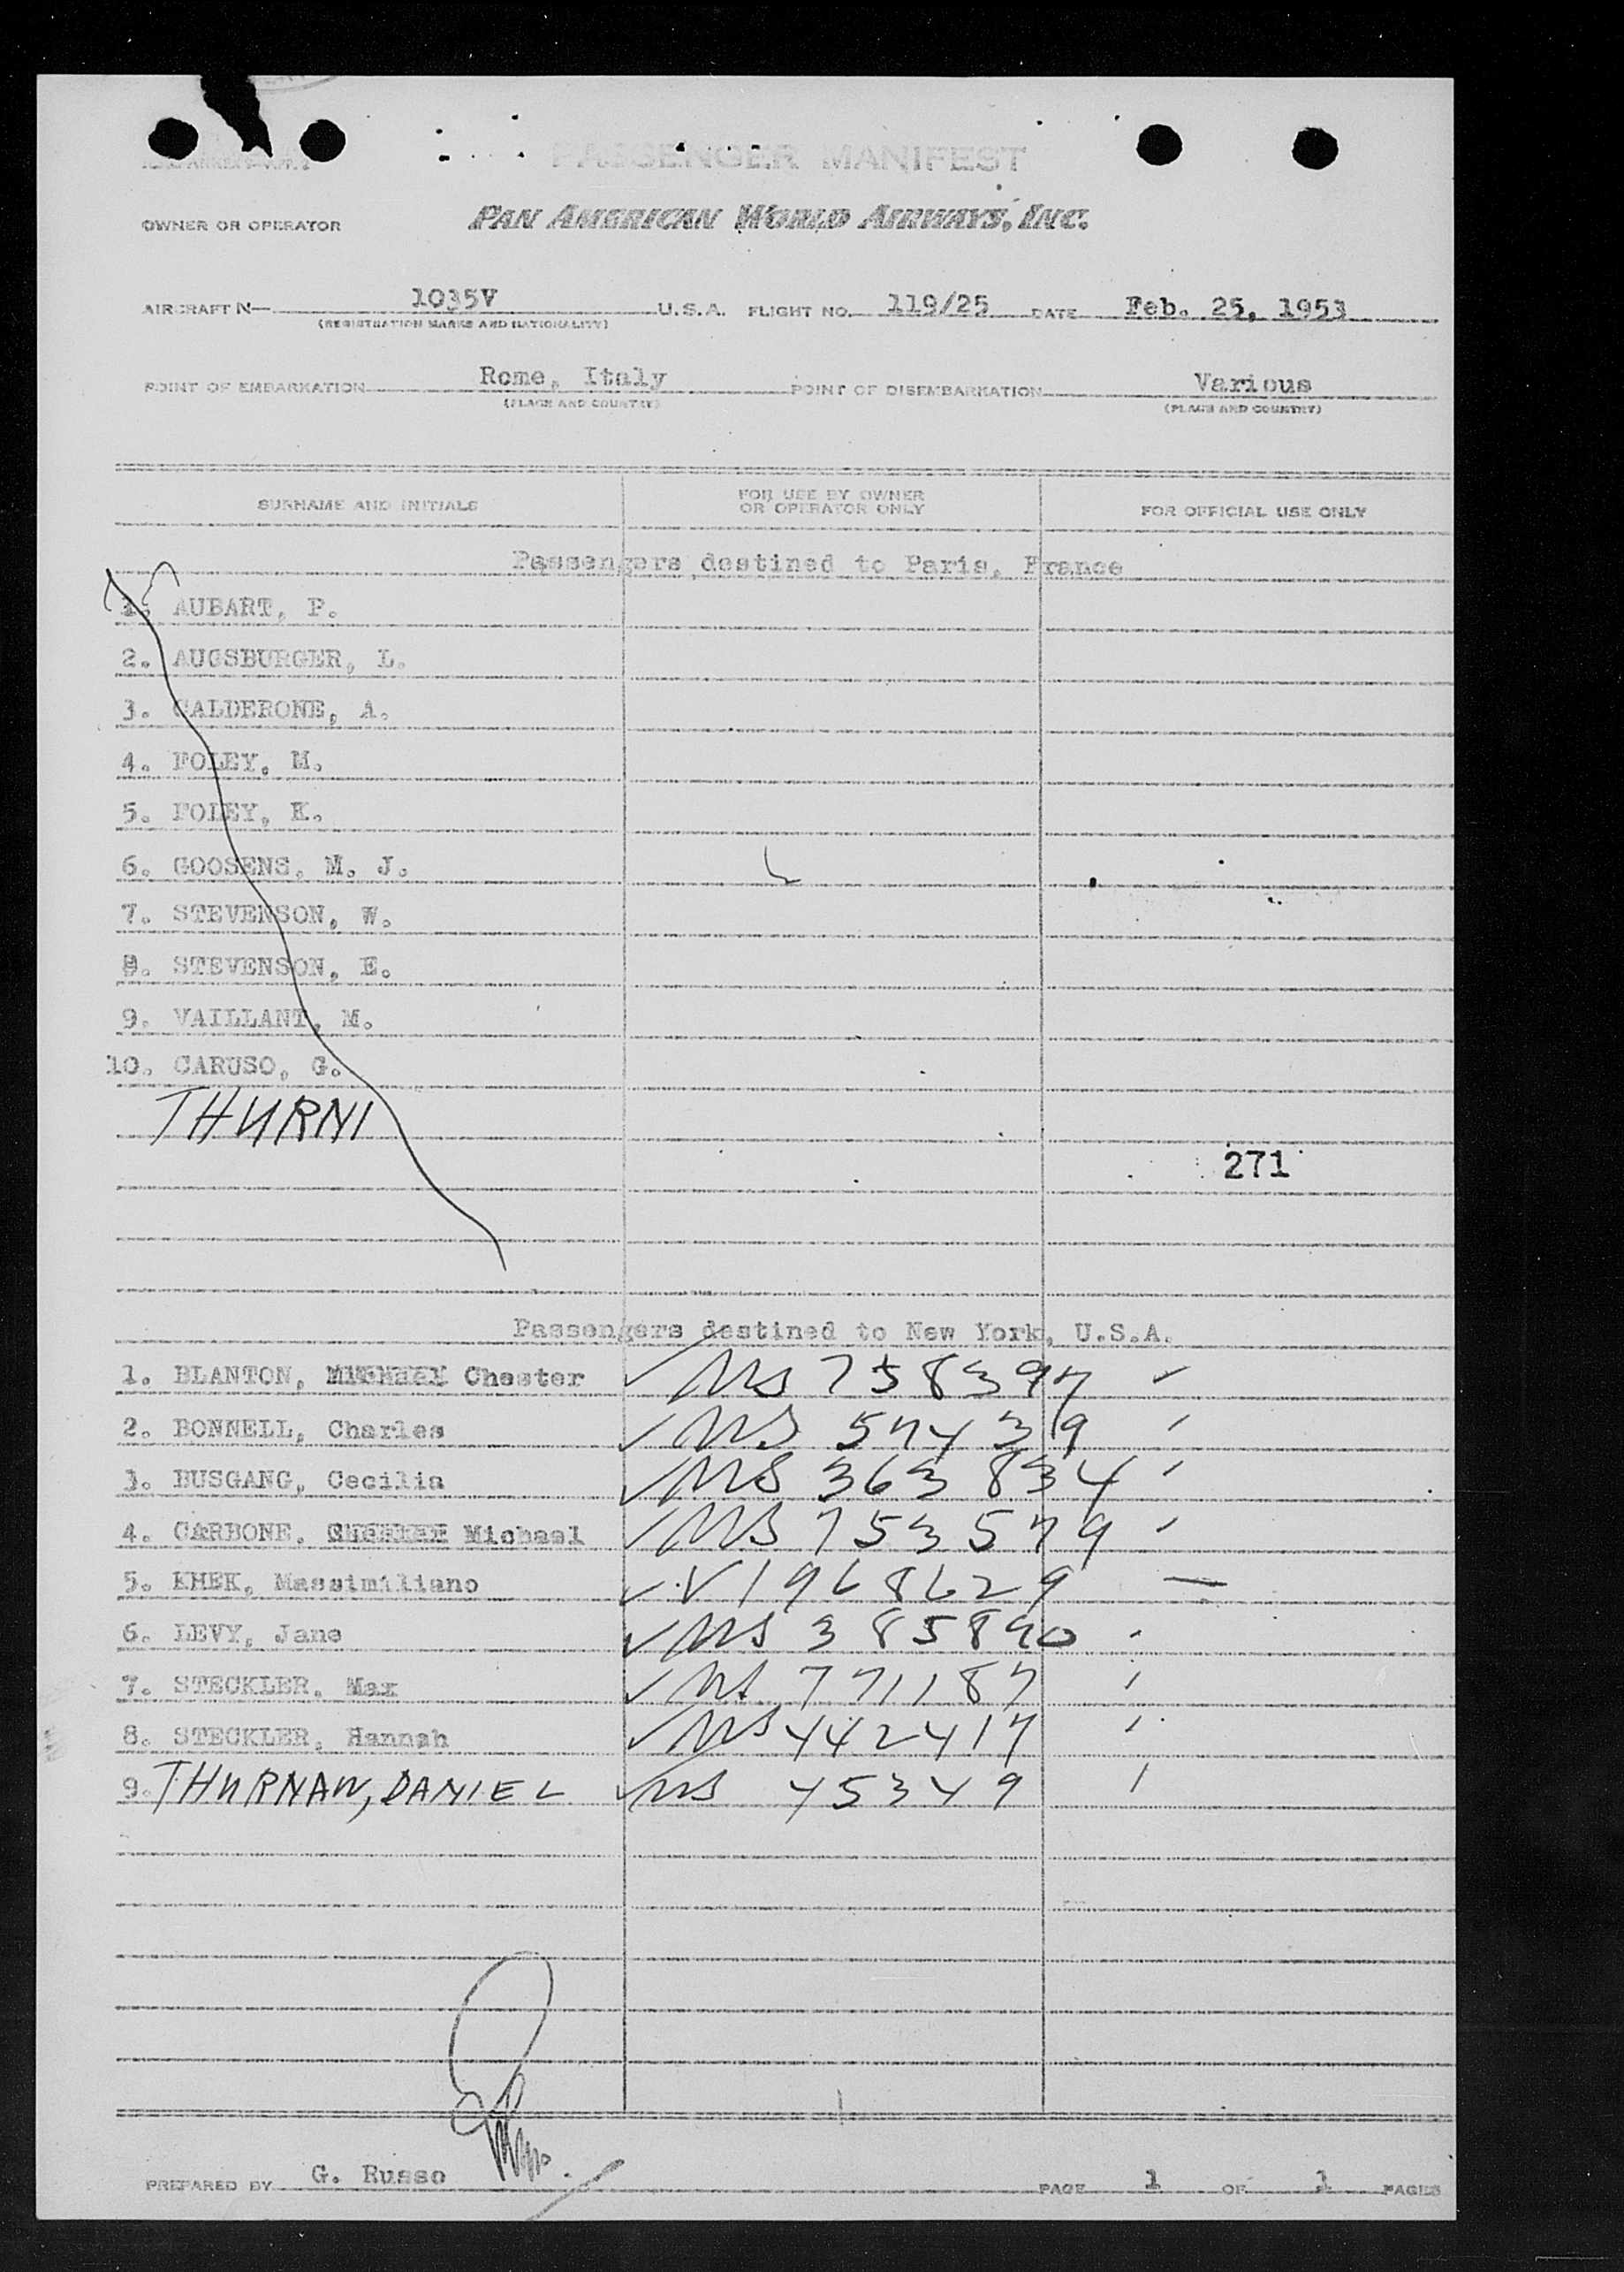 PASSENGER MANIFEST
OWNER OR OPERATOR PAN AMERICAN WORLD AIRWAYS, INC.
AIRCRAFT N— 1035V U.S.A. FLIGHT NO. 119/25 DATE Feb. 25, 1953
(REGISTRATION MARKS AND NATIONALITY)
POINT OF EMBARKATION Rome, Italy POINT OF DISEMBARKATION Various
(PLACE AND COUNTRY) (PLACE AND COUNTRY)
SURNAME AND INITIALS FOR USE BY OWNER OR OPERATOR ONLY FOR OFFICIAL USE ONLY
Passengers destined to Paris, France
1. AUBART, P.
2. AUGSBURGER, L.
3. CALDERONE, A.
4. FOLEY, M.
5. FOLEY, K.
6. GOOSENS, M. J.
7. STEVENSON, W.
8. STEVENSON, E.
9. VAILLANT, M.
10. CARUSO, G.
THURNI
271
Passengers destined to New York, U.S.A.
1. BLANTON, Chester ✓ NS 758397
2. BONNELL, Charles ✓ NS 574319
3. BUSGANG, Cecilia ✓ NS 363834
4. CARBONE, Michael ✓ NS 753579
5. KHEK, Massimiliano ✓ V 1968629 —
6. LEVY, Jane ✓ NS 385890
7. STECKLER, Max ✓ NS 771187
8. STECKLER, Hannah ✓ NS 442417
9. THURNAW, DANIEL ✓ NS 45349
PREPARED BY G. Russo PAGE 1 OF 1 PAGES